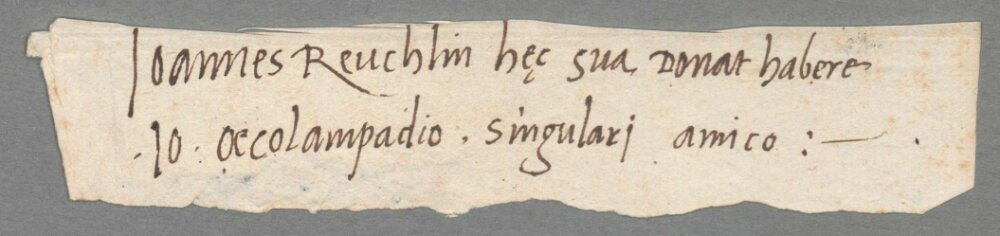 Ioannes Reuchlin hęc sua Donat habere
. Io . Oecolampadio . singulari amico : — .